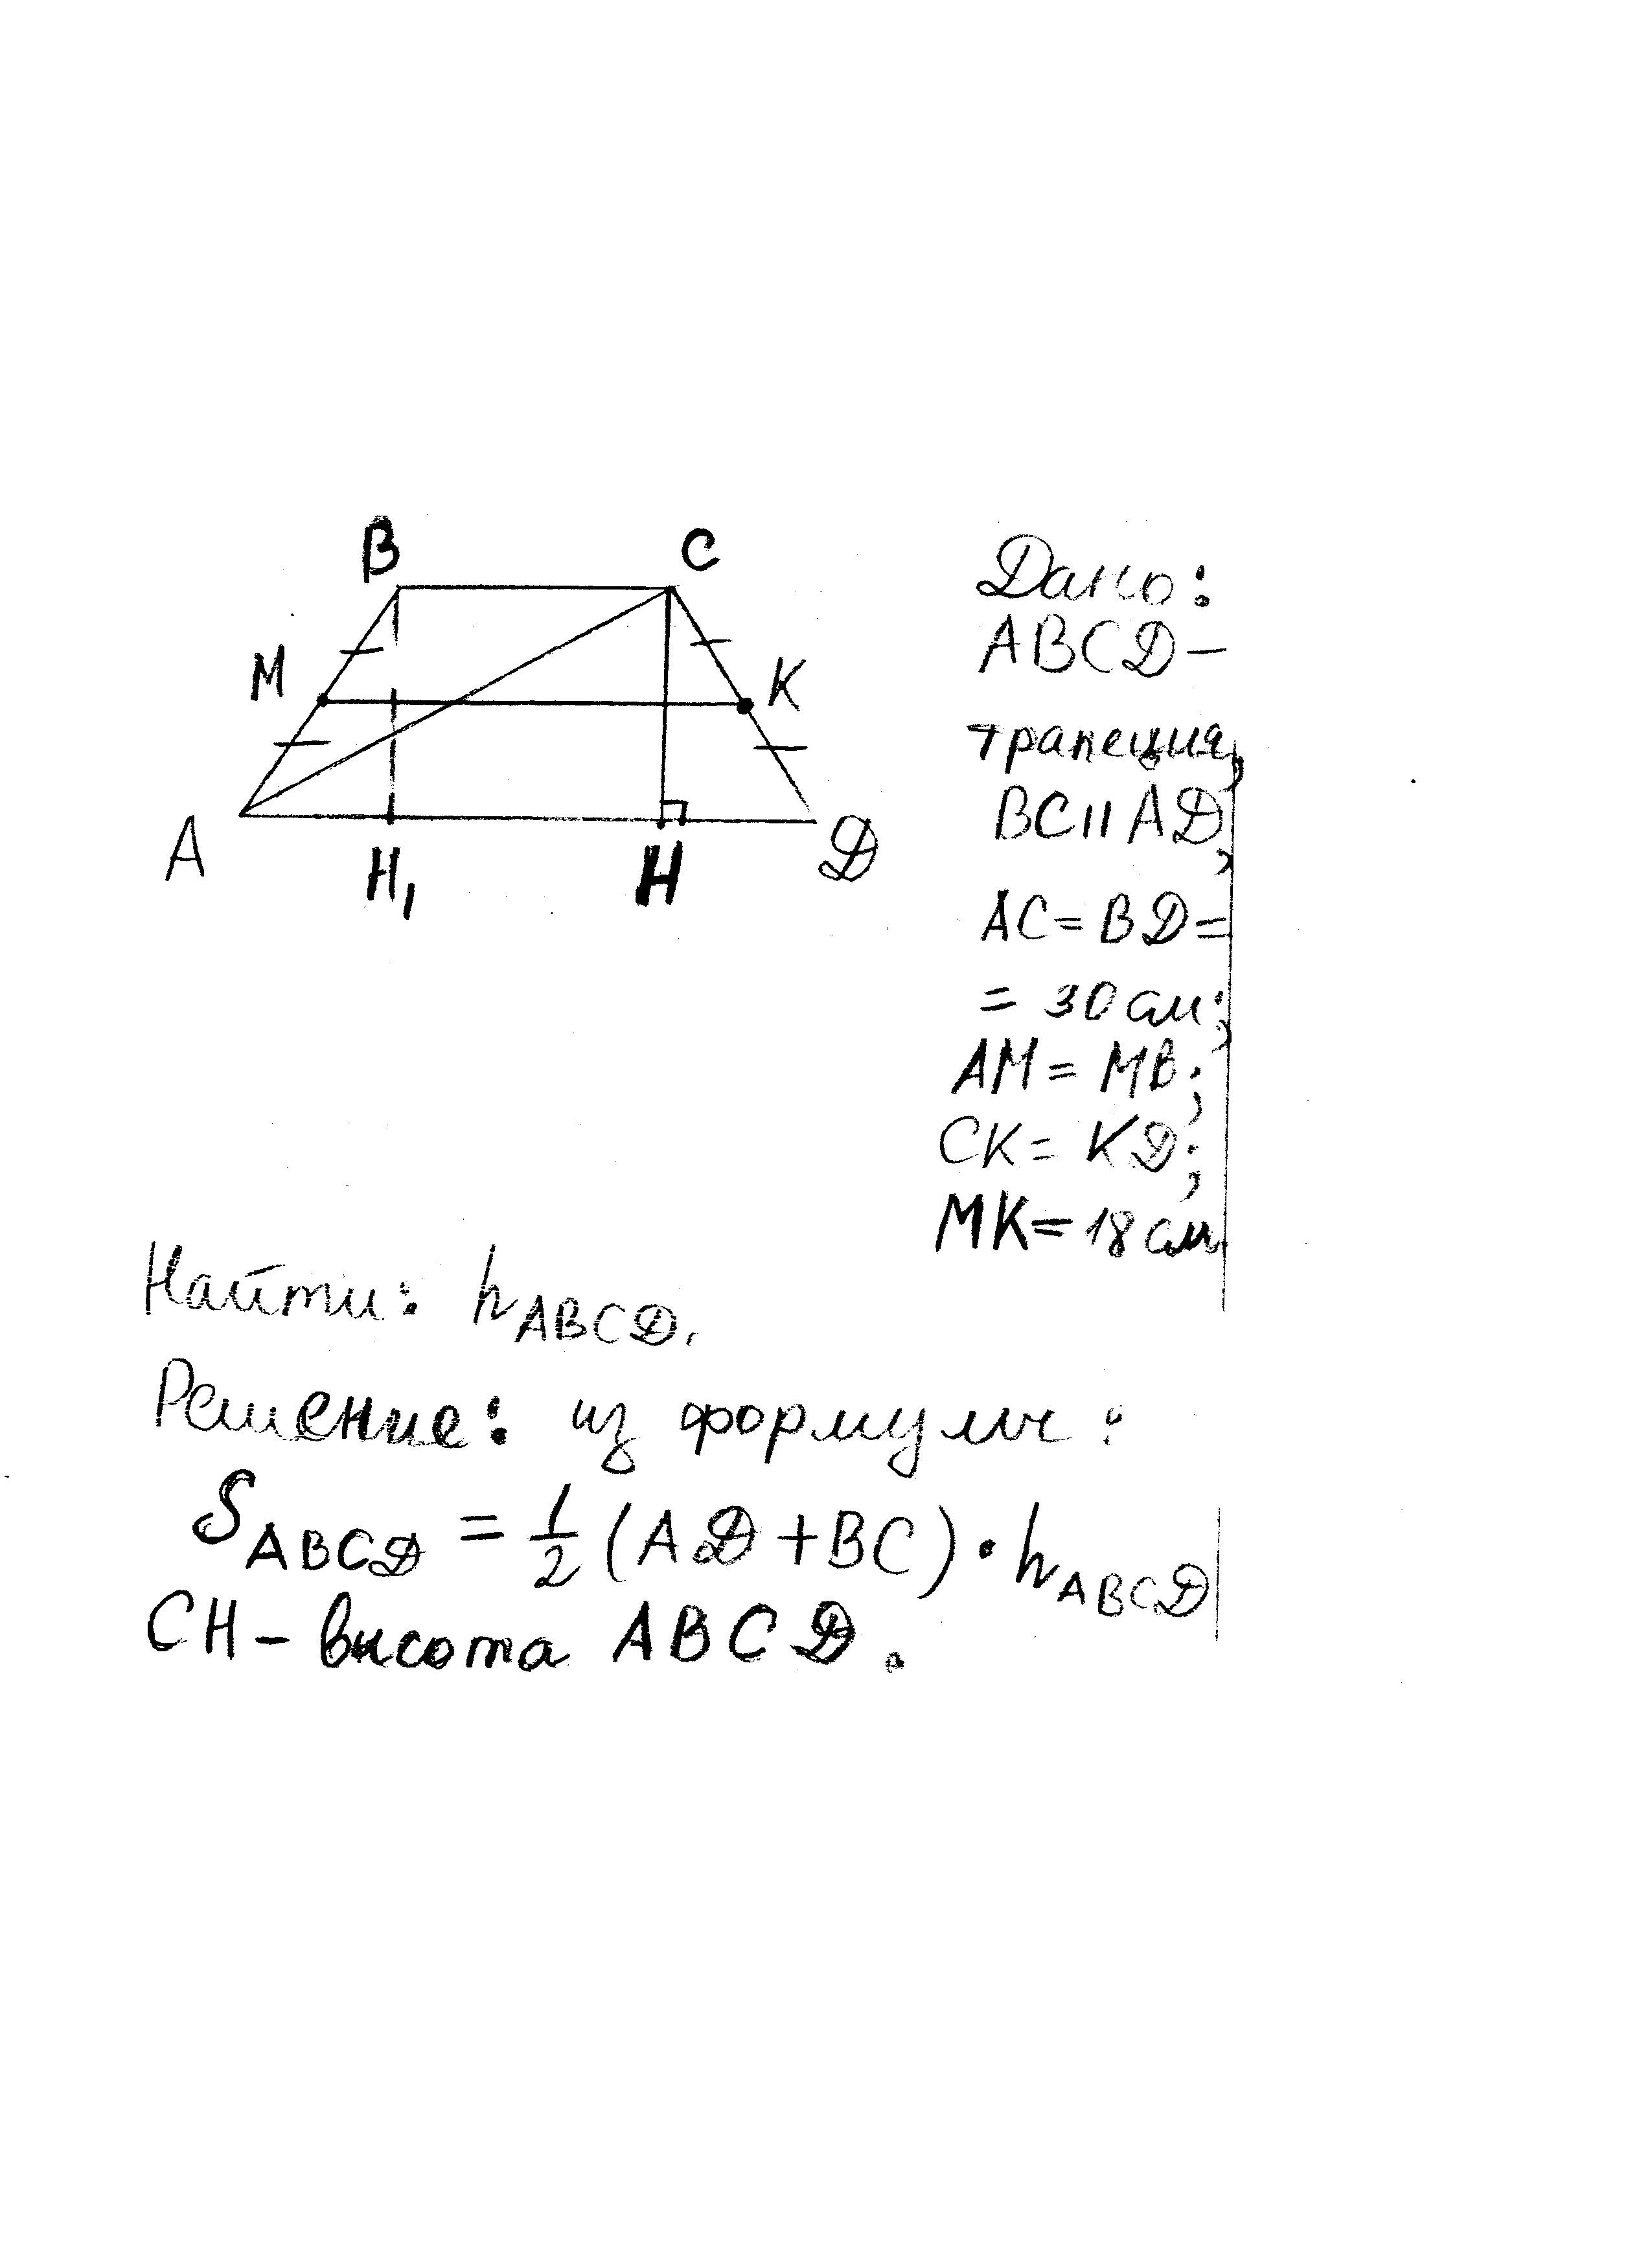 B C
M K
A H₁ H D
Дано:
ABCD –
трапеция,
BC || AD,
AC = BD =
= 30 см;
AM = MB;
CK = KD;
MK = 18 см.
Найти: h ABCD.
Решение: из формулы:
S ABCD = 1/2 (AD + BC) · h ABCD
CH – высота ABCD.